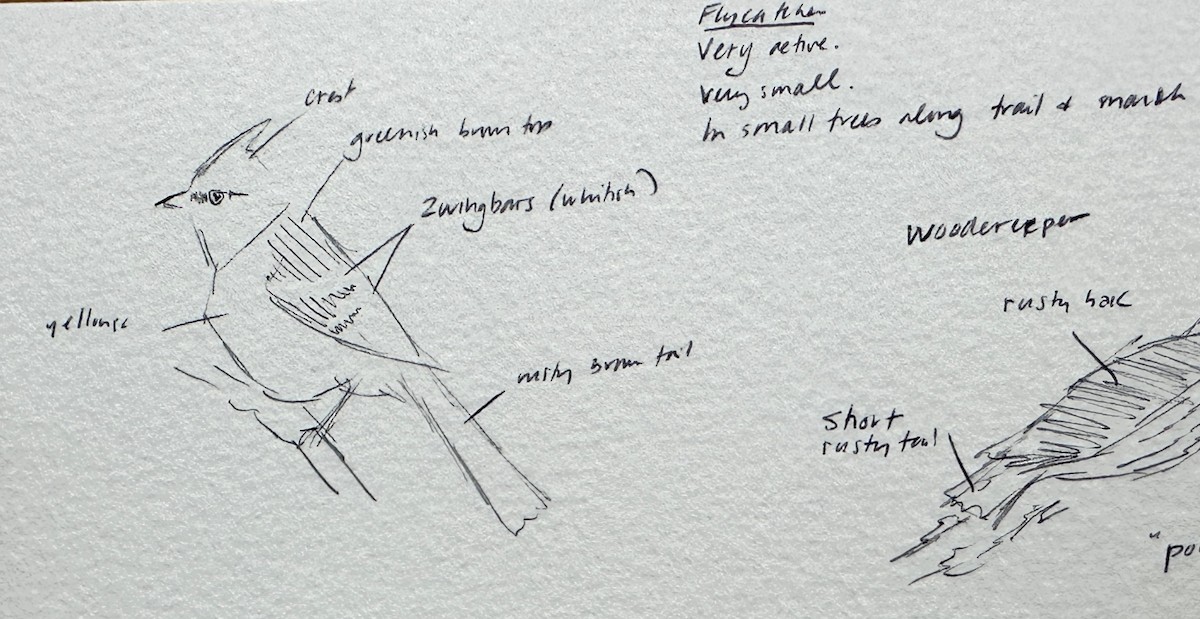 Flycatcher
Very active.
Very small.
In small trees along trail & marsh
crest
greenish brown top
2 wingbars (whitish)
yellowish
rusty brown tail
Woodcreeper
rusty back
short
rusty tail